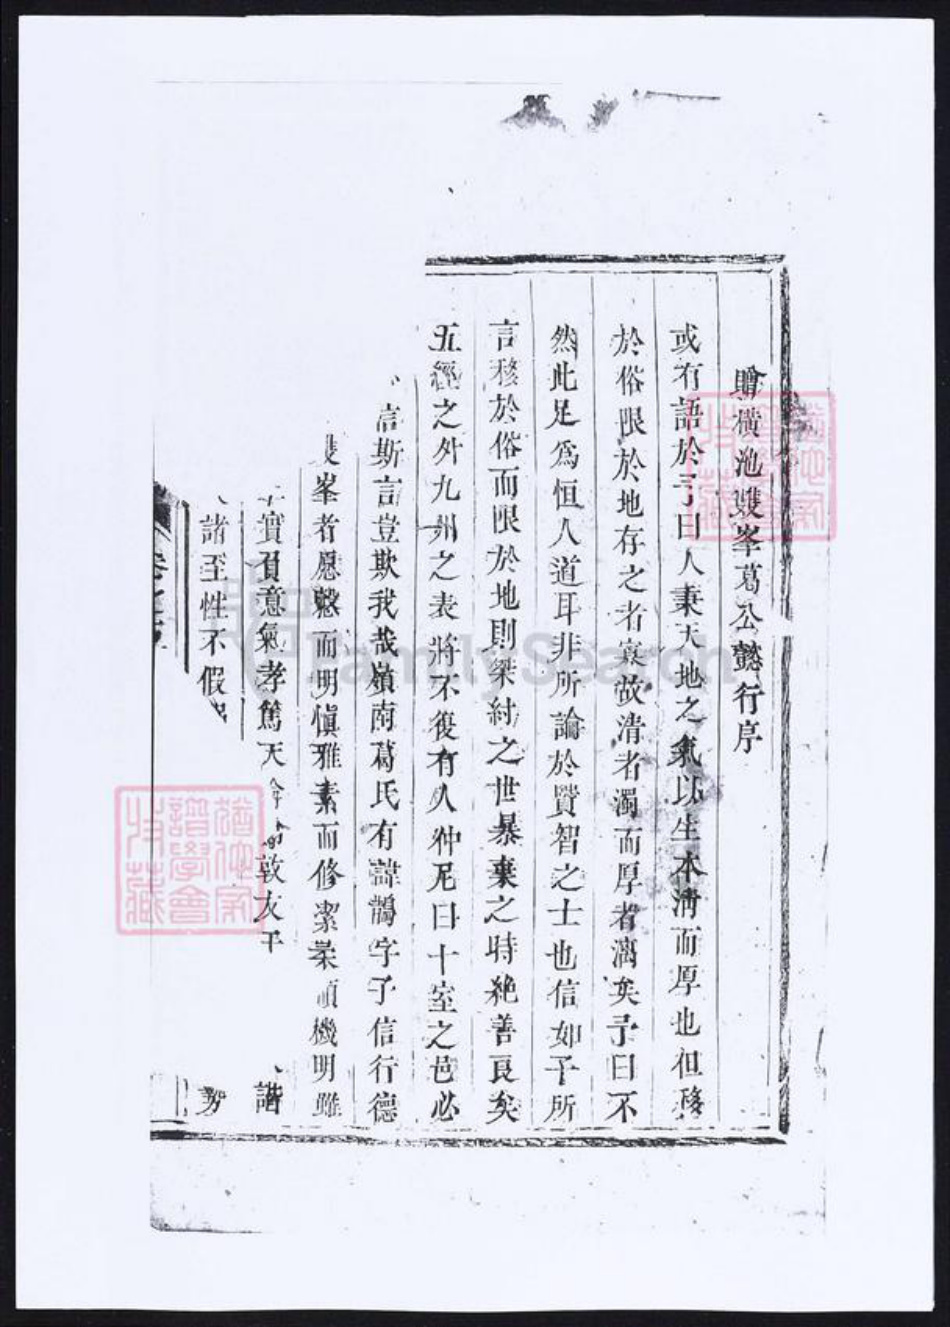 贈橫池雙峯葛公懿行序
或有語於予曰人秉天地之氣以生本淸而厚也但移
於俗限於地存之者衰故清者濁而厚者漓矣予曰不
然此足爲恒人道耳非所論於賢智之士也信如予所
言移於俗而限於地則桀紂之世暴棄之時絶善良矣
五經之外九州之表將不復有人仲尼曰十室之邑必
言斯言豈欺我哉嶺南葛氏有諱鵠字子信行德
峯者愿慤而明愼雅素而修潔 機明雖
實負意氣孝篤天 敦友于 諧
諸至性不假
卷之
猶他家譜學會收藏
猶他家譜學會收藏
FamilySearch